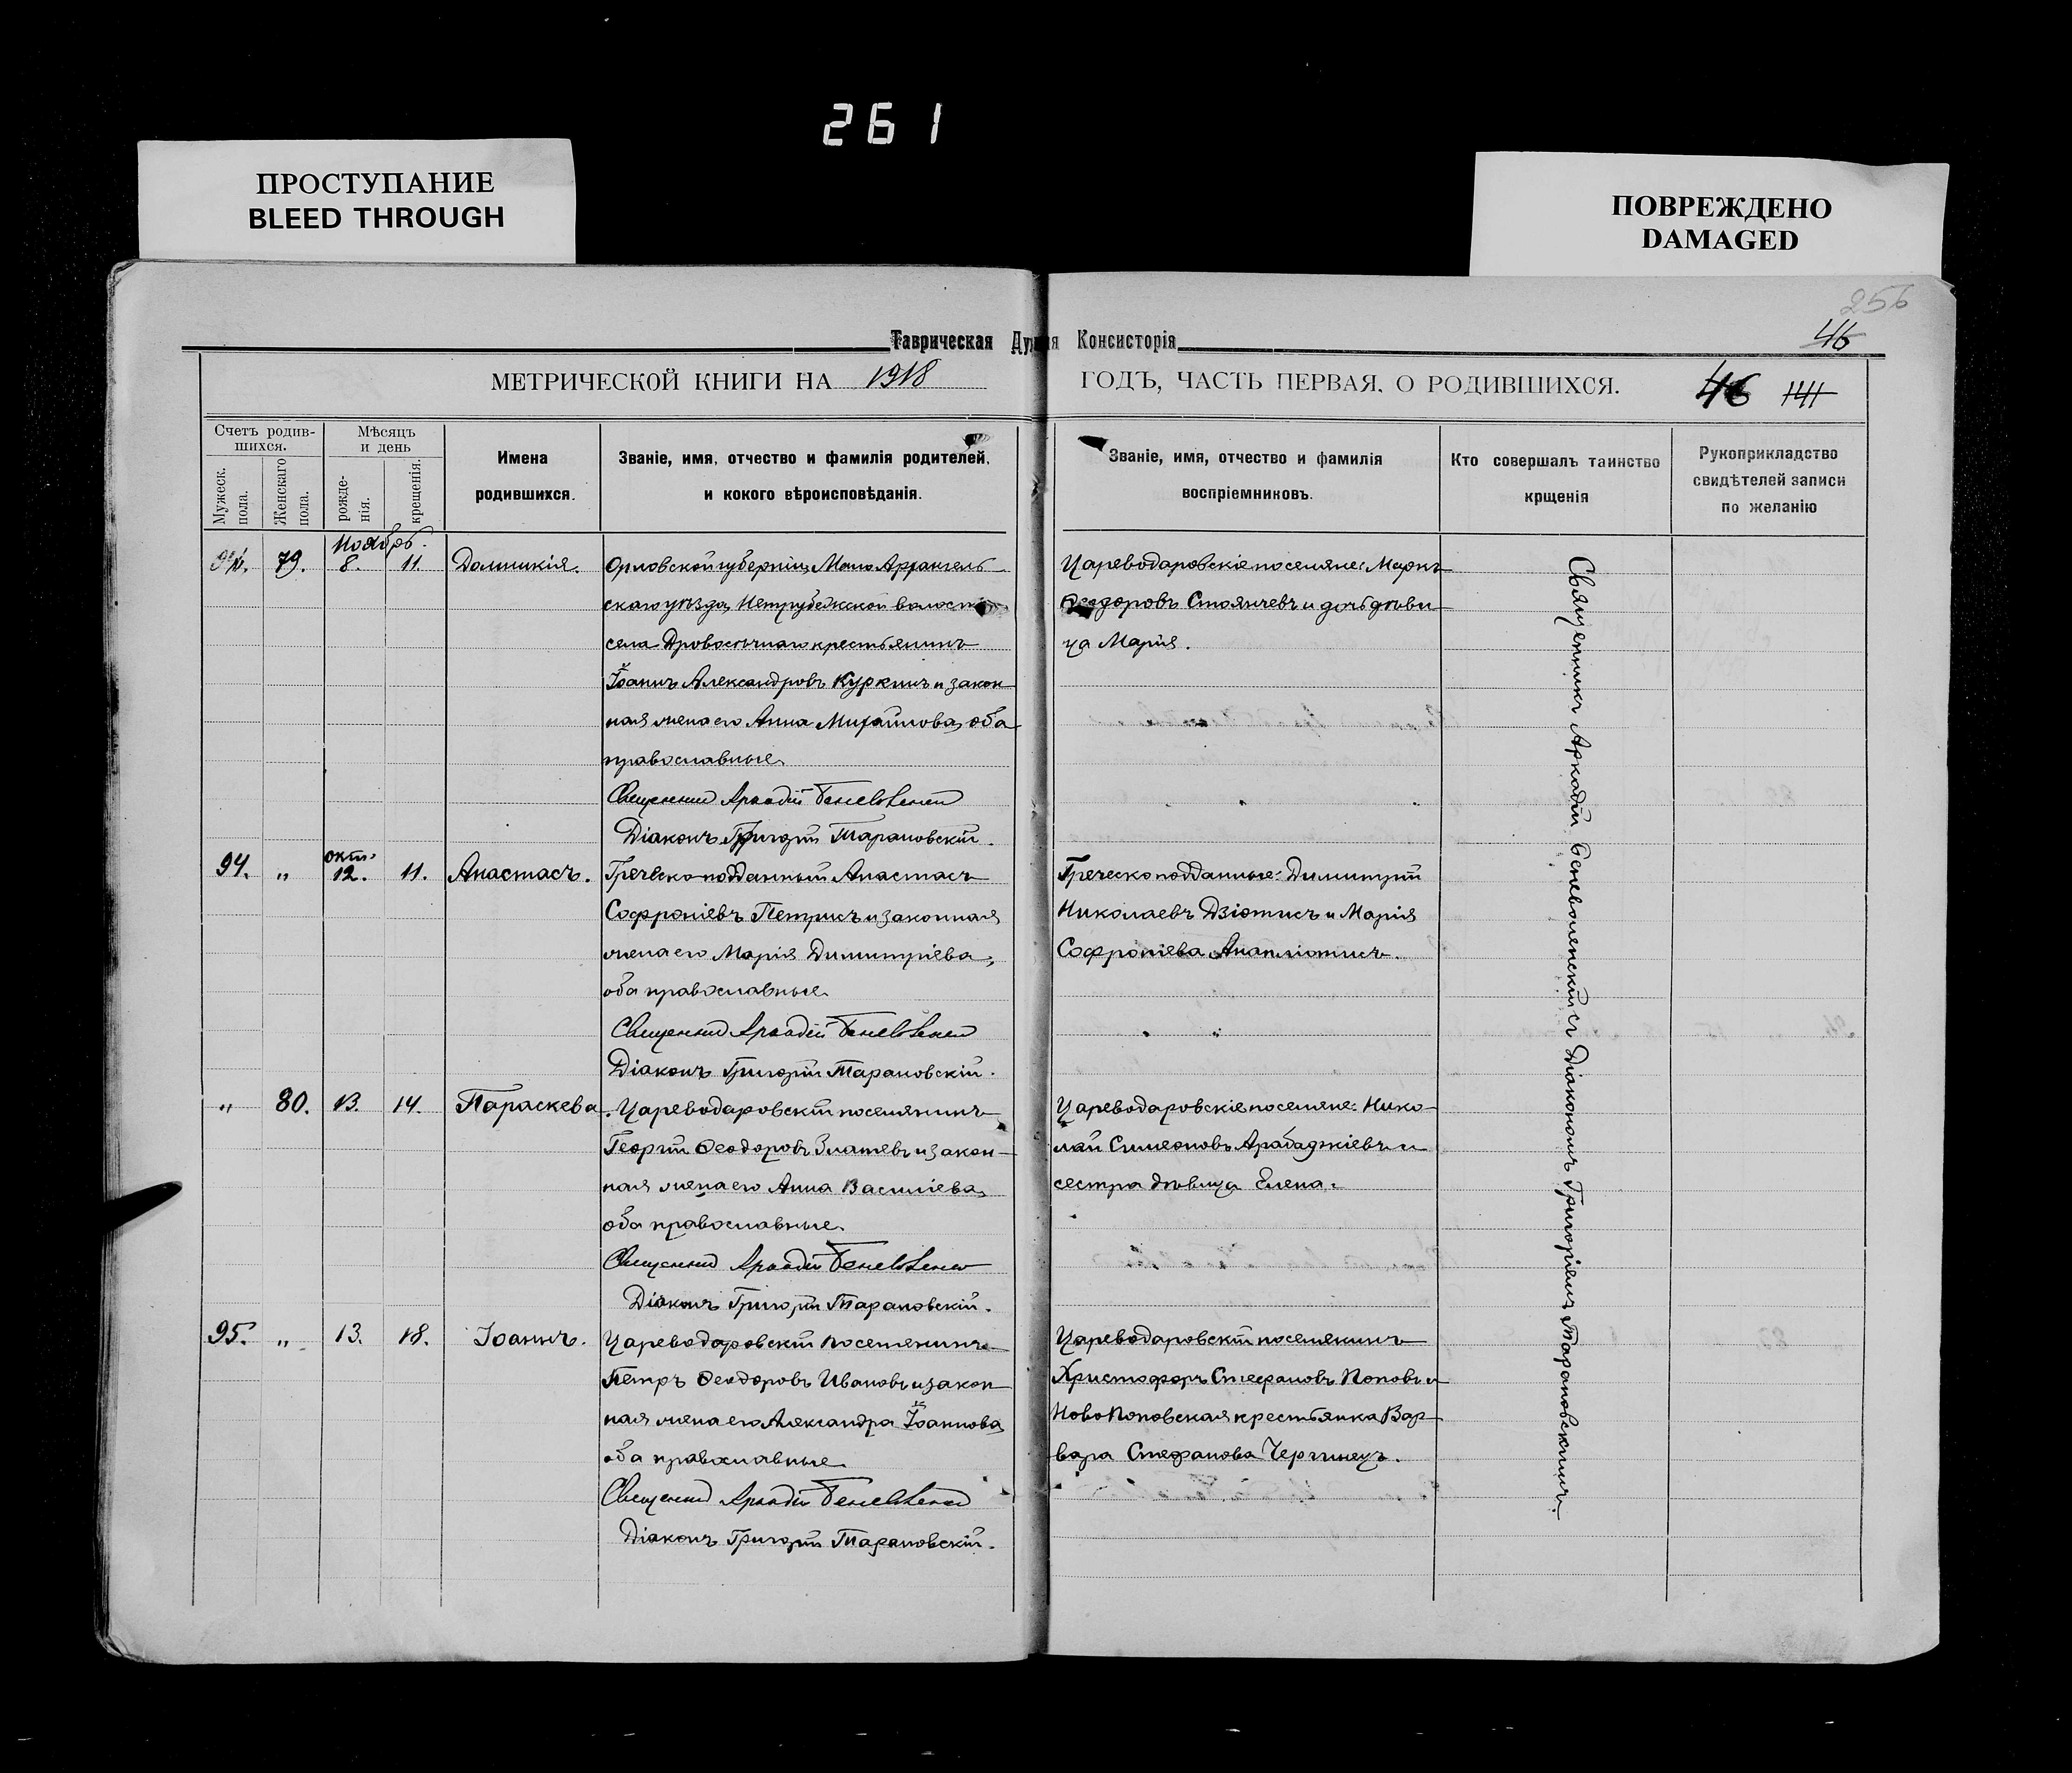 261
ПРОСТУПАНИЕ
BLEED THROUGH
ПОВРЕЖДЕНО
DAMAGED
256
46
Таврическая Ду я Консисторія
МЕТРИЧЕСКОЙ КНИГИ НА 1918 ГОДЪ, ЧАСТЬ ПЕРВАЯ, О РОДИВШИХСЯ.
46 141
Счетъ родив-
шихся.
Мужеск.
пола.
Женскаго
пола.
Мѣсяцъ
и день
рожде-
нія.
крещенія.
Имена
родившихся.
Званіе, имя, отчество и фамилія родителей,
и кокого вѣроисповѣданія.
Званіе, имя, отчество и фамилія
воспріемниковъ.
Кто совершалъ таинство
крщенія
Рукоприкладство
свидѣтелей записи
по желанію
Ноябрь.
79. 8. 11. Домникія.
Орловской губерніи, Мало Архангель
скаго уѣзда, волости
села Дровосѣчнаго крестьянинъ
Іоаннъ Александровъ Куркинъ и закон
ная жена его Анна Михайлова, оба
православные
Священникъ Аркадій Беневоленскій
Діаконъ Григорій Тарановскій.
Цареводаровскіе поселяне: Маркъ
Ѳеодоровъ Стоянчевъ и дочь дѣви
ца Марія.
94. " окт. 12. 11. Анастасъ.
Греческо подданный Анастасъ
Софроніевъ Петрисъ и законная
жена его Марія Димитріева,
оба православные
Священникъ Аркадій Беневоленскій
Діаконъ Григорій Тарановскій.
Греческо подданные: Димитрій
Николаевъ Дзіотисъ и Марія
Софроніева Анапліотисъ.
" 80. 13. 14. Параскева.
Цареводаровскій поселянинъ
Георгій Ѳеодоровъ Златевъ и закон-
ная жена его Анна Василіева,
оба православные
Священникъ Аркадій Беневоленскій
Діаконъ Григорій Тарановскій.
Цареводаровскіе поселяне: Нико-
лай Симеоновъ Арабаджіевъ и
сестра дѣвица Елена.
95. " 13. 18. Іоаннъ.
Цареводаровскій поселянинъ
Петръ Ѳеодоровъ Ивановъ и закон
ная жена его Александра Іоаннова
оба православные
Священникъ Аркадій Беневоленскій
Діаконъ Григорій Тарановскій.
Цареводаровскій поселянинъ
Христофоръ Стефановъ Поповъ и
Ново Поповская крестьянка Вар-
вара Стефанова
Священникъ Аркадій Беневоленскій съ Діакономъ Григоріемъ Тарановскимъ.